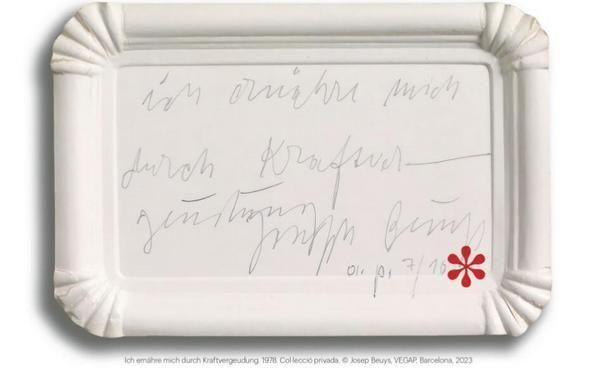 ich ernähre mich
durch Kraftver-
geudung
Joseph Beuys
a. p. 7/10
Ich ernähre mich durch Kraftvergeudung. 1978. Col·lecció privada. © Josep Beuys, VEGAP, Barcelona, 2023